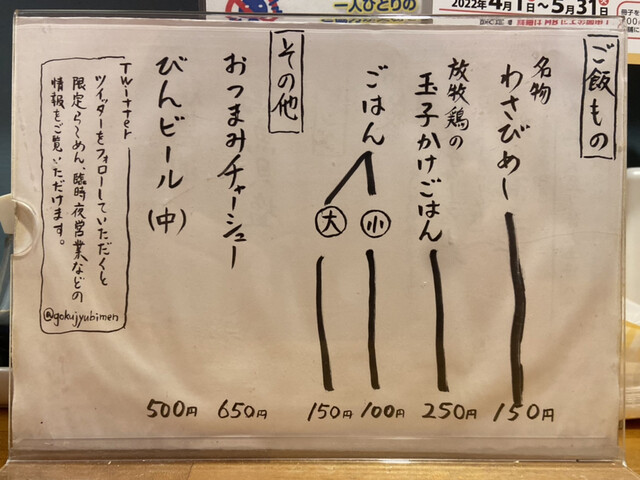 一人ひとりの
2022年4月1日~5月31日
ご飯もの
名物
わさびめし
150円
放牧鶏の
玉子かけごはん
250円
ごはん
小
100円
大
150円
その他
おつまみチャーシュー
650円
びんビール(中)
500円
Twitter
ツイッターをフォローしていただくと
限定らーめん、臨時夜営業などの
情報をご覧いただけます。
@gokujyubimen